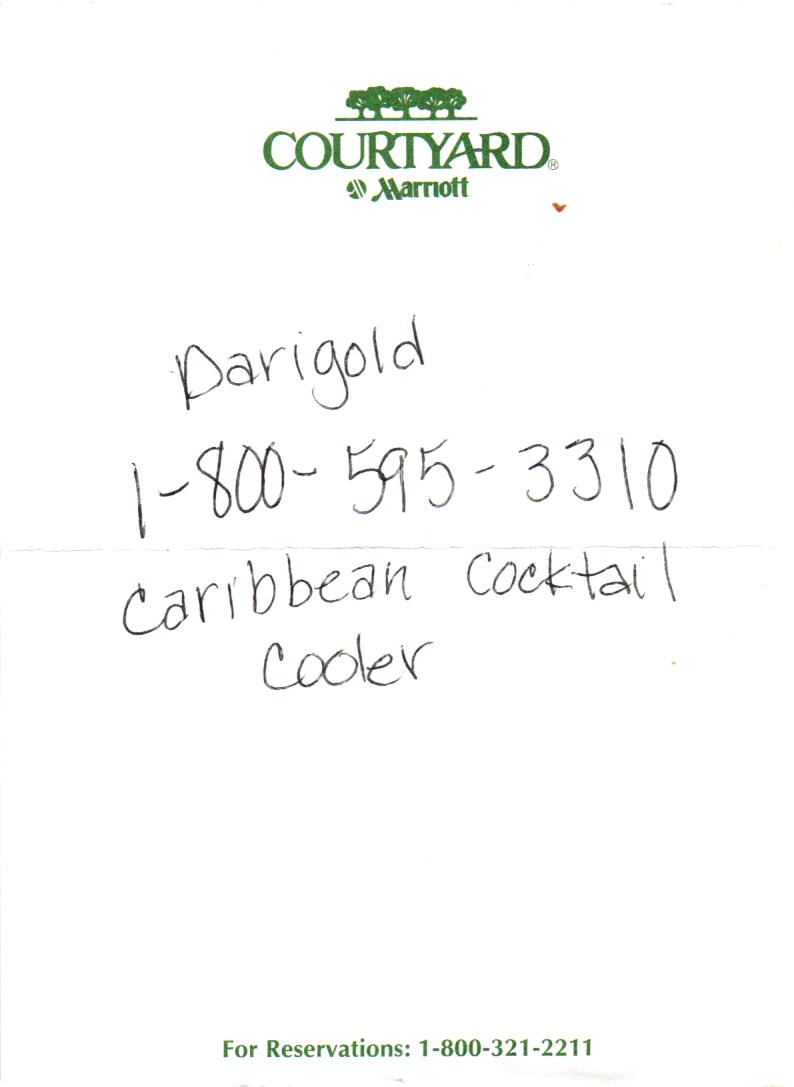 COURTYARD®
Marriott
Darigold
1-800-595-3310
Caribbean Cocktail
Cooler
For Reservations: 1-800-321-2211